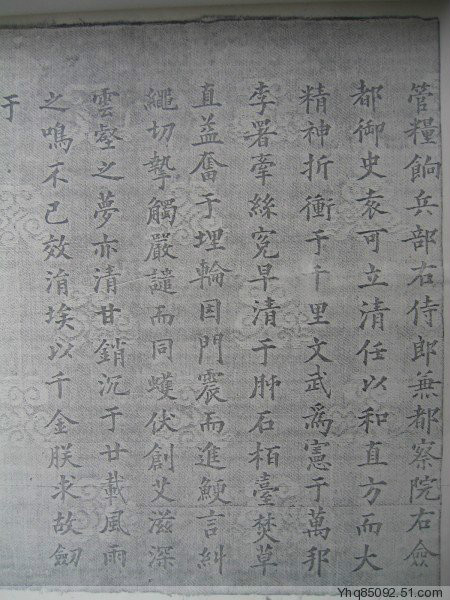 管糧餉兵部右侍郎兼都察院右僉
都御史袁可立清任以和直方而大
精神折衝于千里文武爲憲于萬邦
李署牽絲寃早清于肺石栢臺焚草
直益奮于埋輪因門震而進鯁言糾
繩切摯觸嚴譴而同蠖伏創艾滋深
雲壑之夢亦清甘銷沉于廿載風雨
之鳴不已效涓埃以千金朕求故劒
于
Yhq85092.51.com